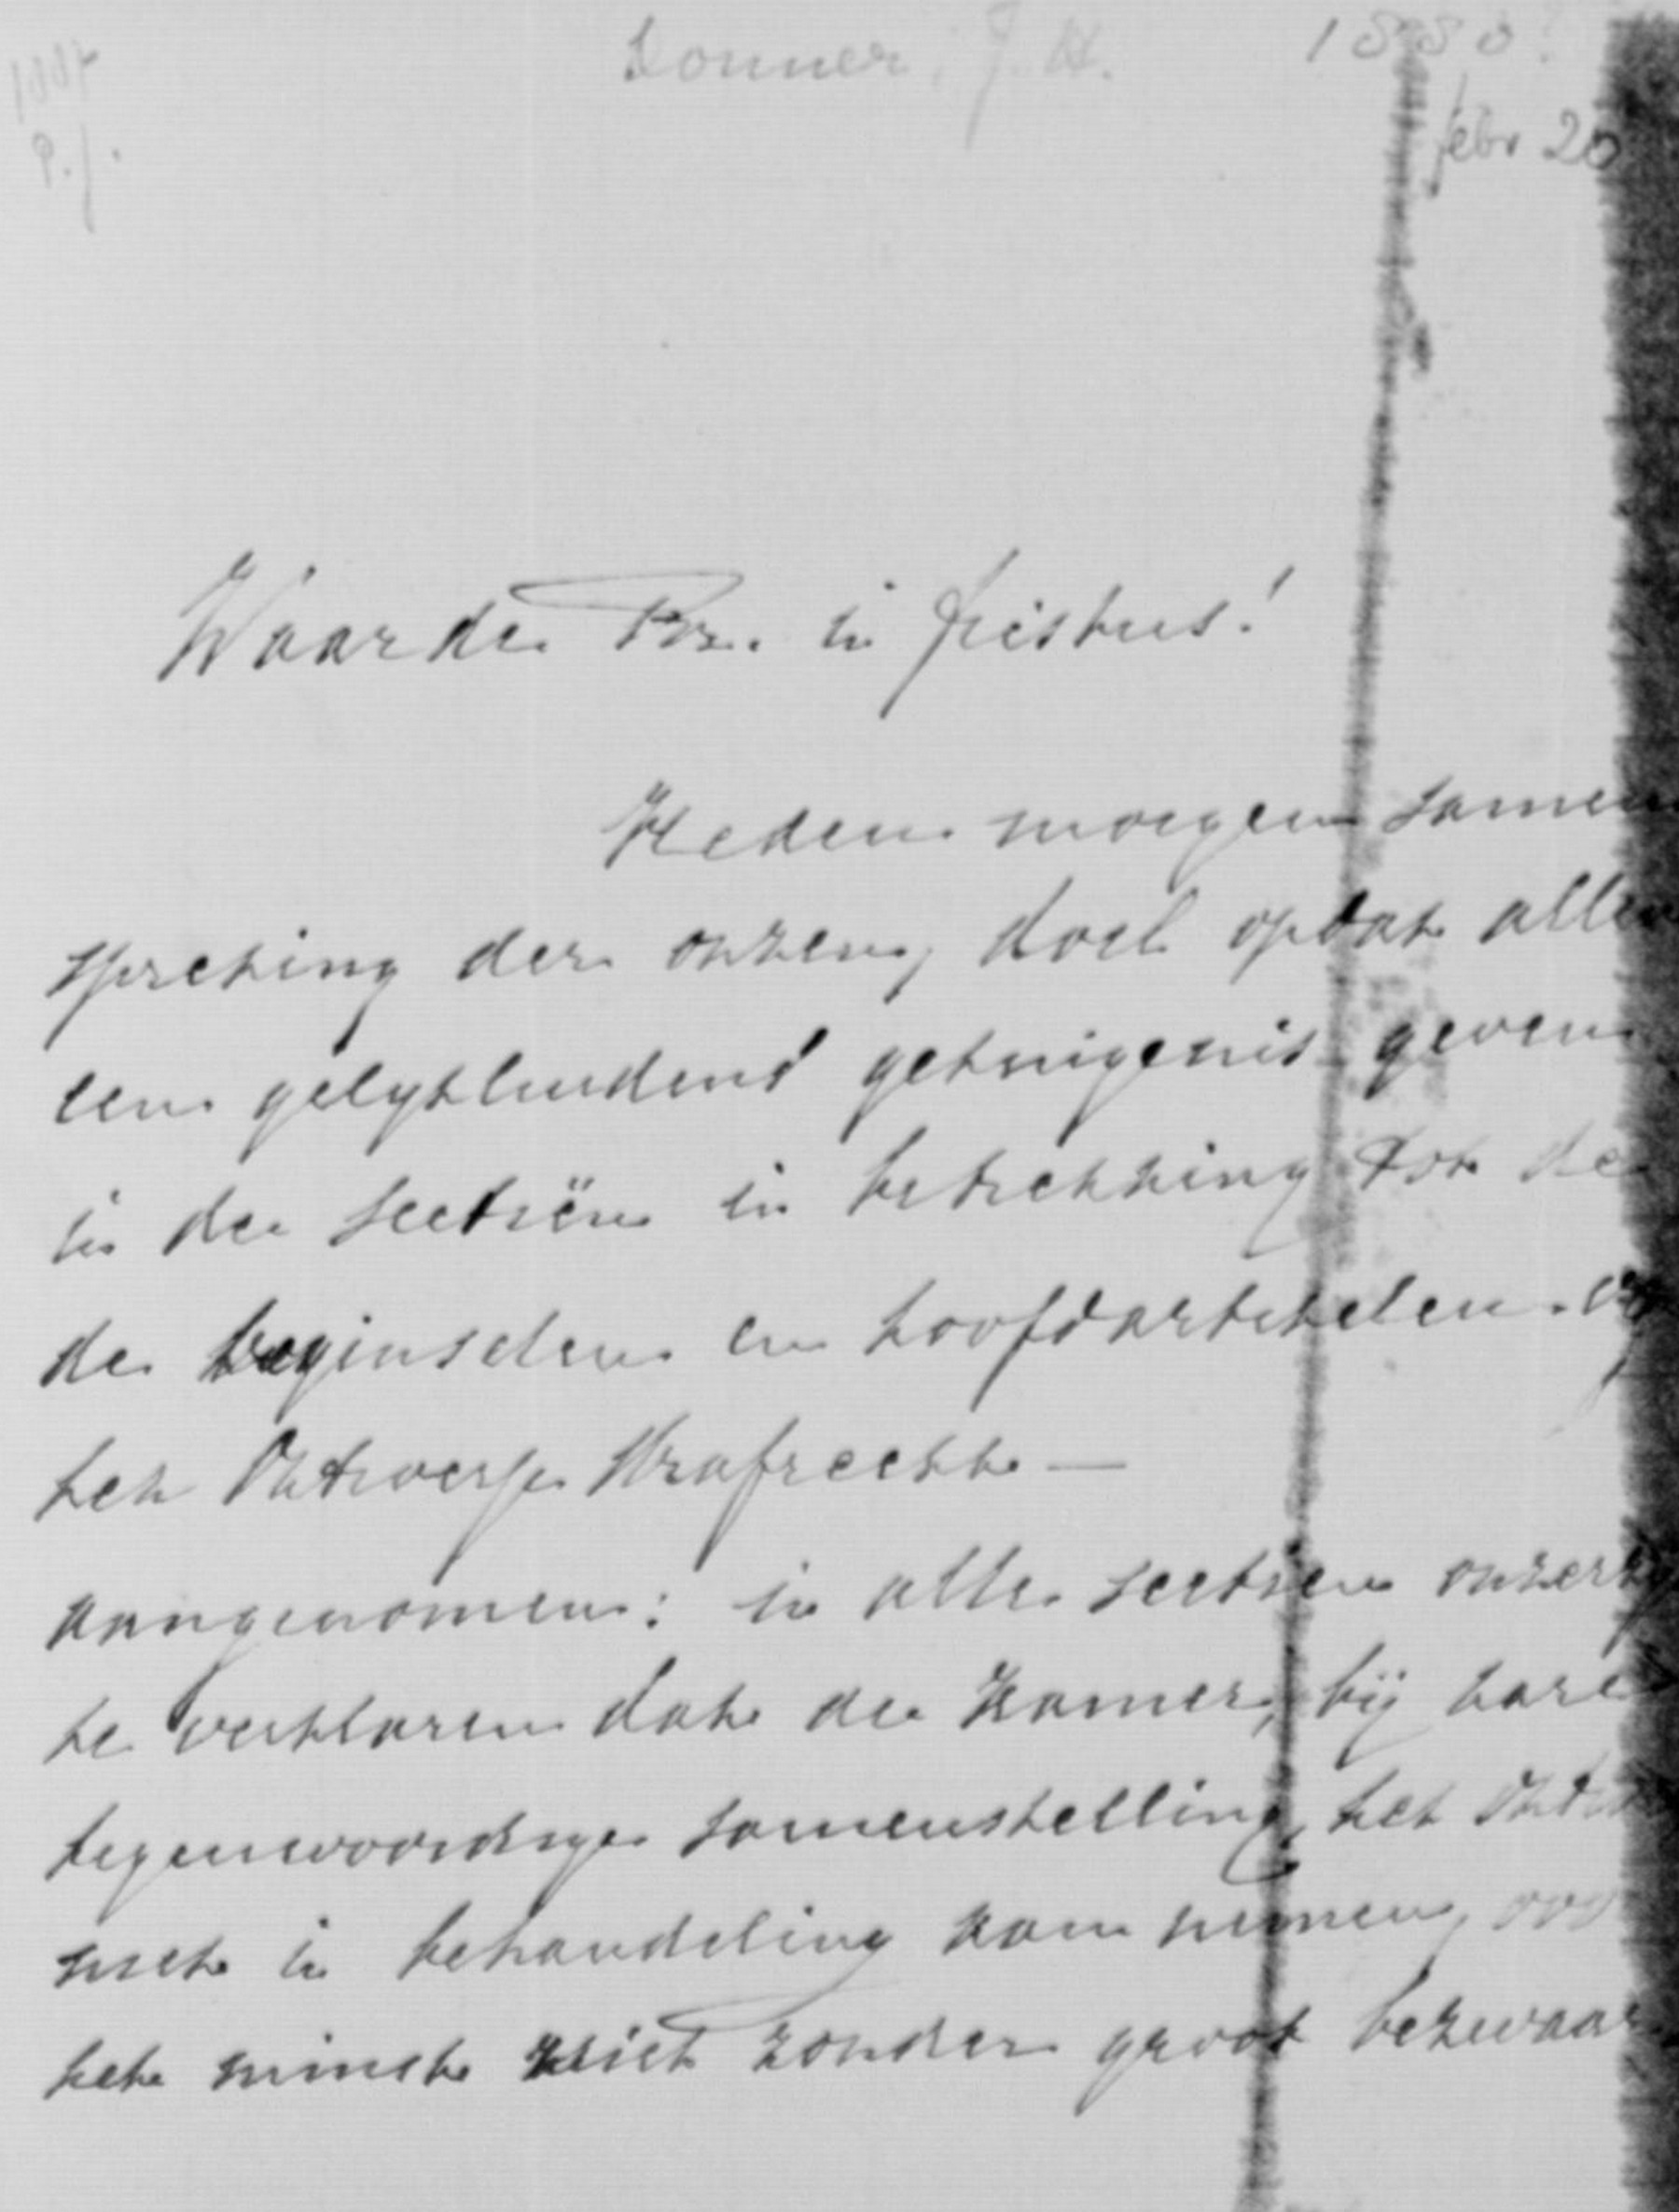 Donner, J.H. 1880?
1007
febr 20
P.J.
Waarde Br. in Kristus!
Heden morgen samen
spreking der onzen, doel opdat allen
een gelijkluidend getuigenis geven
in de sectiën in betrekking tot de
de beginselen en hoofdartikelen
het Ontwerp Strafrecht —
aangenomen: in alle sectien onzerz
te verklaren dat de Kamer, bij hare
tegenwoordige samenstelling, het Ontw
niet in behandeling kan nemen, voo
het minst niet zonder groot bezwaar